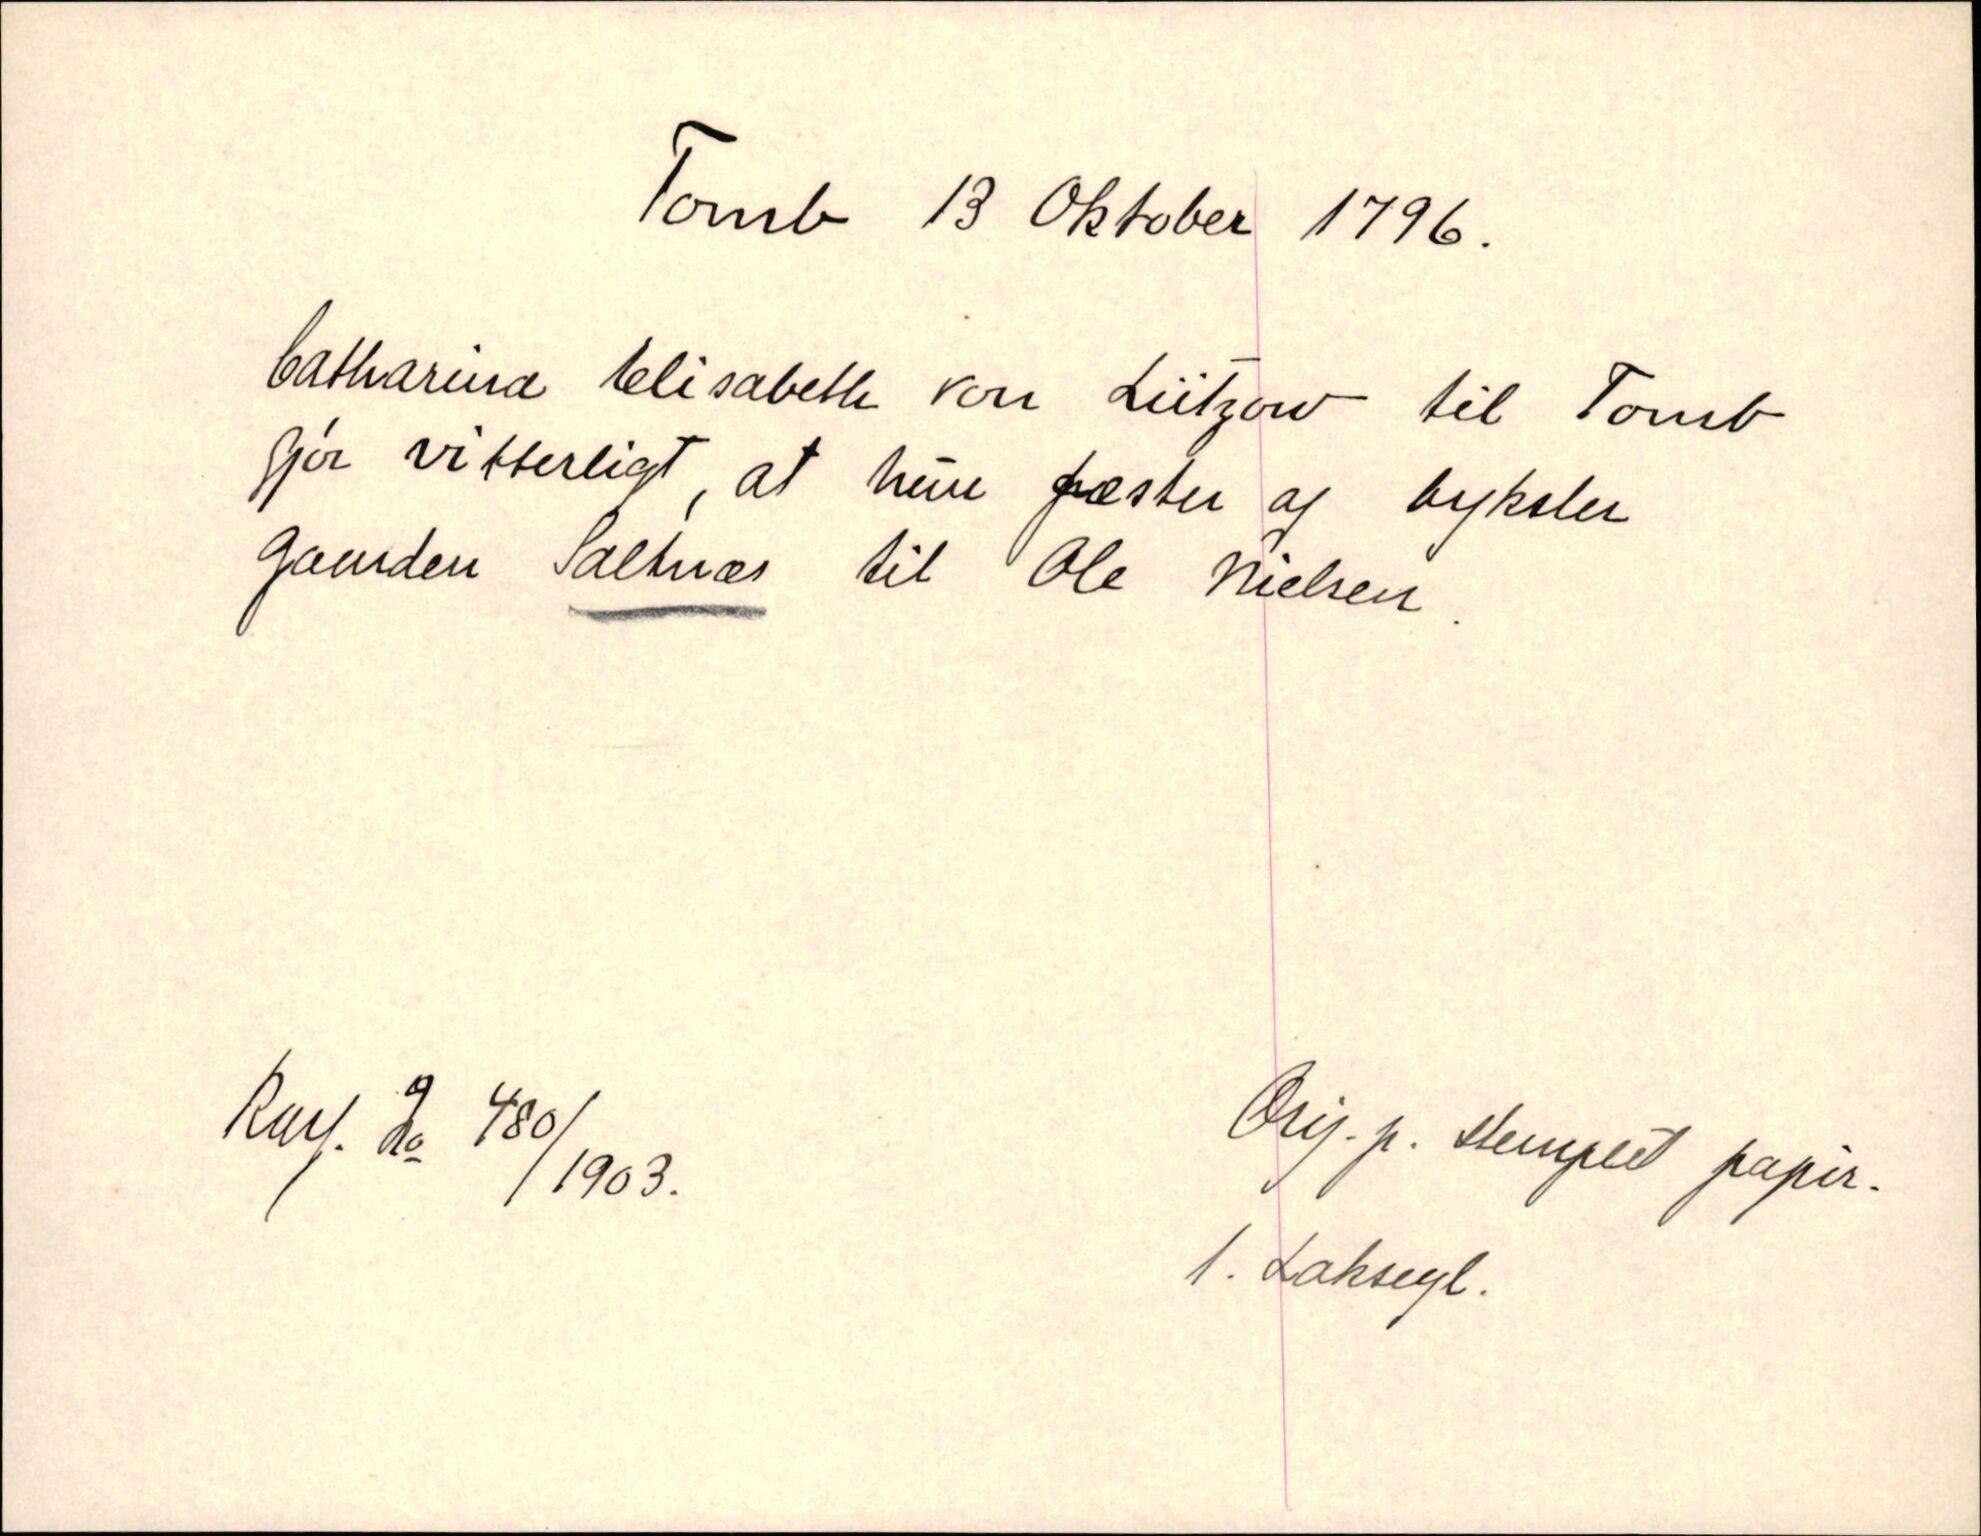 Tomb 13 Oktober 1796.
Catharina Elisabeth von Lützow til Tomb
gjör vitterligt, at hun fæster og byksler
gaarden Saltnæs til Ole Nielsen.
480/1903.
Orig. p. stemplet papir.
1. Laksegl.